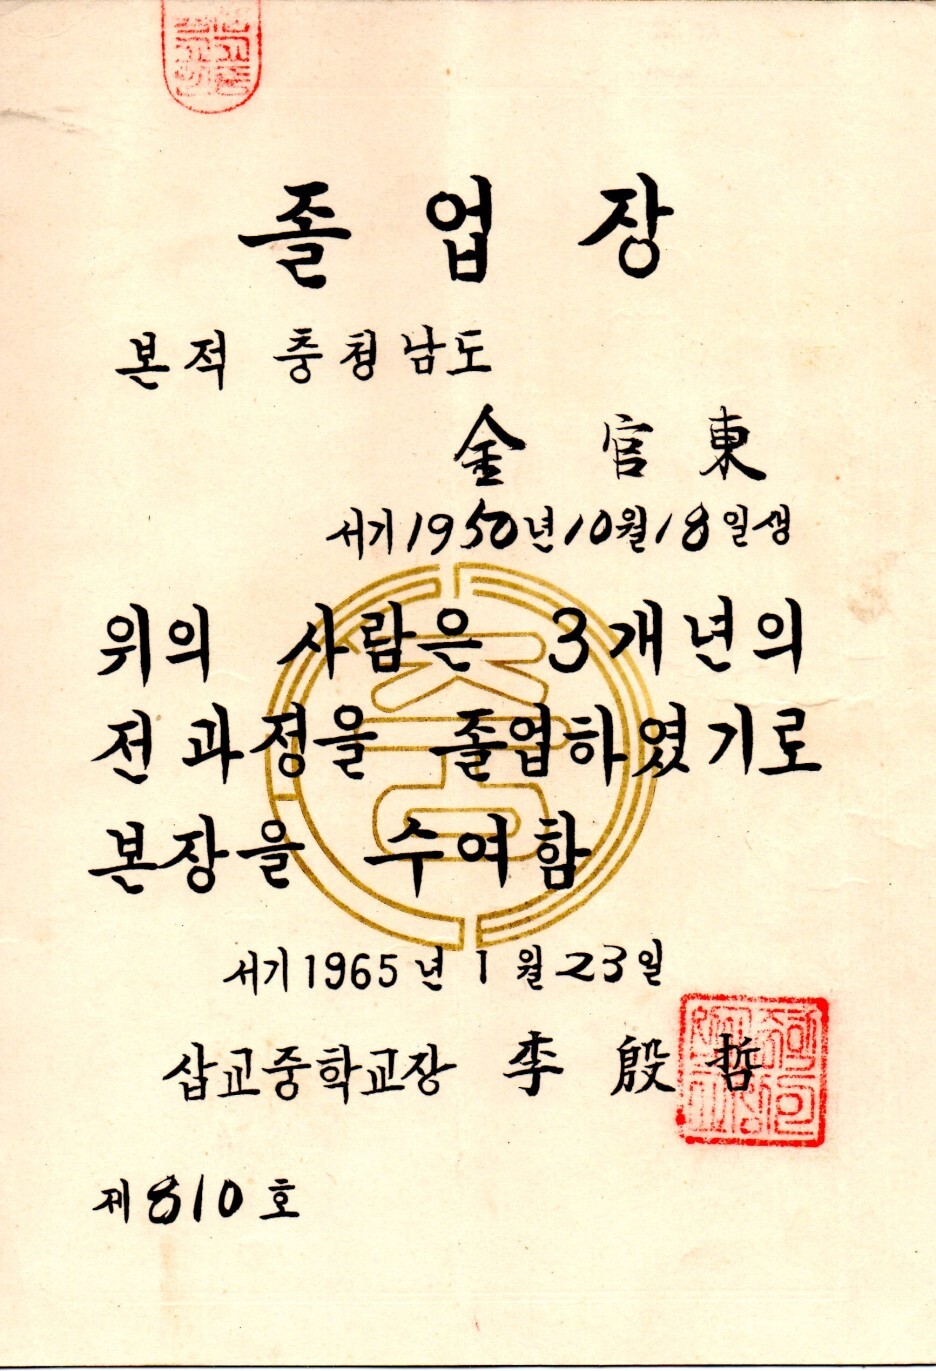 졸업장
본적 충청남도
金 官 東
서기 1950년 10월 18일생
위의 사람은 3개년의
전과정을 졸업하였기로
본장을 수여함
서기 1965년 1월 23일
삽교중학교장 李 殷 哲
제 810 호